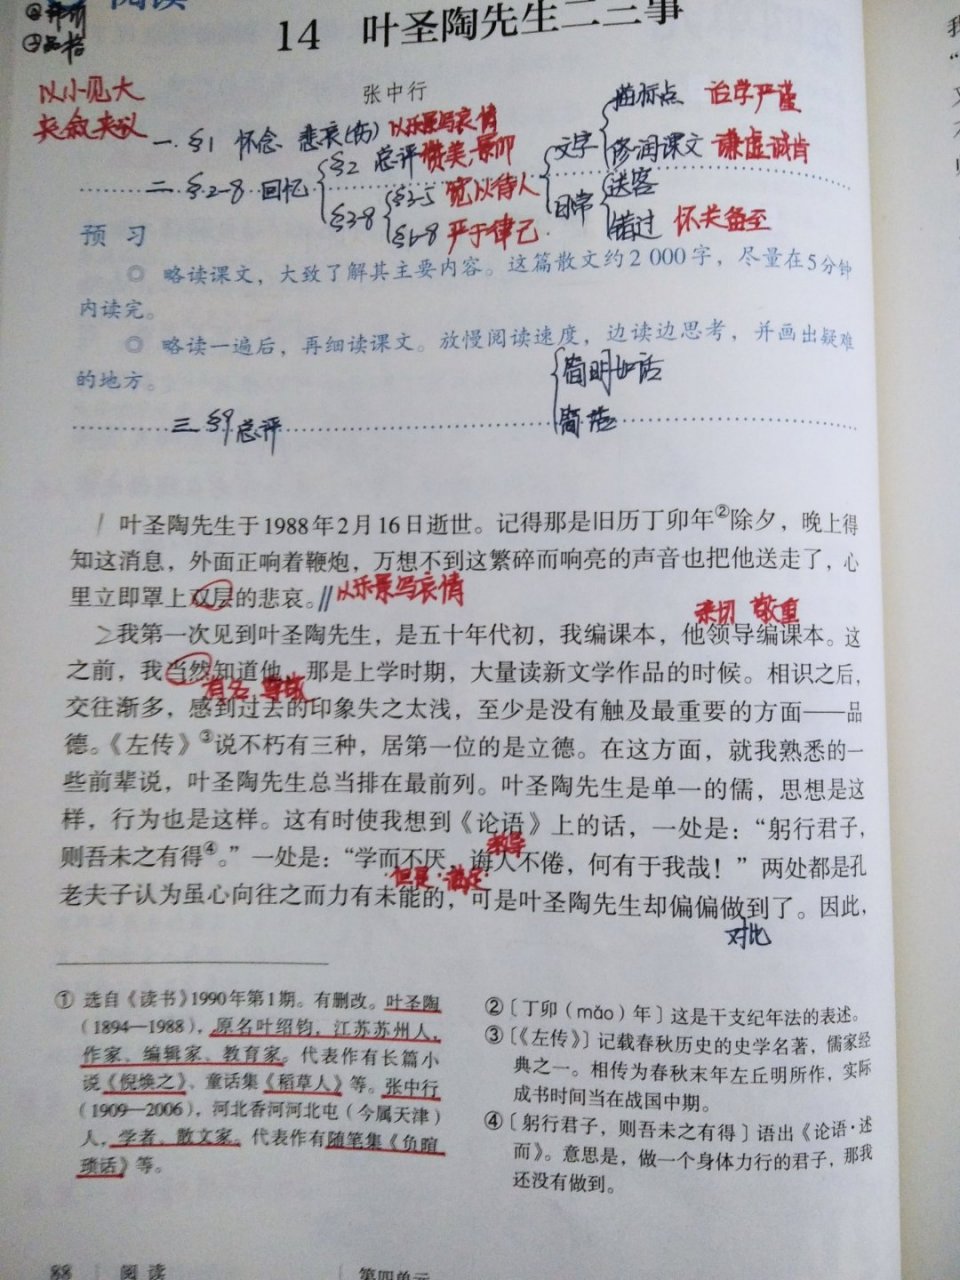 阅读
④品格
14 叶圣陶先生二三事
张中行
以小见大
夹叙夹议
一. §1 怀念、悲哀(伤) 以乐景写哀情
二. §2-8 回忆
§2 总评 赞美,景仰
§3-8
§3-5 宽以待人
§6-8 严于律己.
文字
描标点 治学严谨
修润课文 谦虚诚肯
日常
送客
错过 怀关备至
预习
◎ 略读课文，大致了解其主要内容。这篇散文约2 000字，尽量在5分钟
内读完。
◎ 略读一遍后，再细读课文。放慢阅读速度，边读边思考，并画出疑难
的地方。
简明如话
简洁
三 §9 总评
1 叶圣陶先生于1988年2月16日逝世。记得那是旧历丁卯年②除夕，晚上得
知这消息，外面正响着鞭炮，万想不到这繁碎而响亮的声音也把他送走了，心
里立即罩上双层的悲哀。// 以乐景写哀情
亲切 敬重
2 我第一次见到叶圣陶先生，是五十年代初，我编课本，他领导编课本。这
之前，我当然知道他，那是上学时期，大量读新文学作品的时候。相识之后，
有名 尊敬
交往渐多，感到过去的印象失之太浅，至少是没有触及最重要的方面——品
德。《左传》③说不朽有三种，居第一位的是立德。在这方面，就我熟悉的一
些前辈说，叶圣陶先生总当排在最前列。叶圣陶先生是单一的儒，思想是这
样，行为也是这样。这有时使我想到《论语》上的话，一处是：“躬行君子，
教导
则吾未之有得④。”一处是：“学而不厌，诲人不倦，何有于我哉！”两处都是孔
但是·满足
老夫子认为虽心向往之而力有未能的，可是叶圣陶先生却偏偏做到了。因此，
对比
① 选自《读书》1990年第1期。有删改。叶圣陶
（1894—1988），原名叶绍钧，江苏苏州人，
作家、编辑家、教育家。代表作有长篇小
说《倪焕之》、童话集《稻草人》等。张中行
（1909—2006），河北香河河北屯（今属天津）
人，学者、散文家。代表作有随笔集《负暄
琐话》等。
②〔丁卯（mǎo）年〕这是干支纪年法的表述。
③〔《左传》〕记载春秋历史的史学名著，儒家经
典之一。相传为春秋末年左丘明所作，实际
成书时间当在战国中期。
④〔躬行君子，则吾未之有得〕语出《论语·述
而》。意思是，做一个身体力行的君子，那我
还没有做到。
88 阅读 第四单元
我